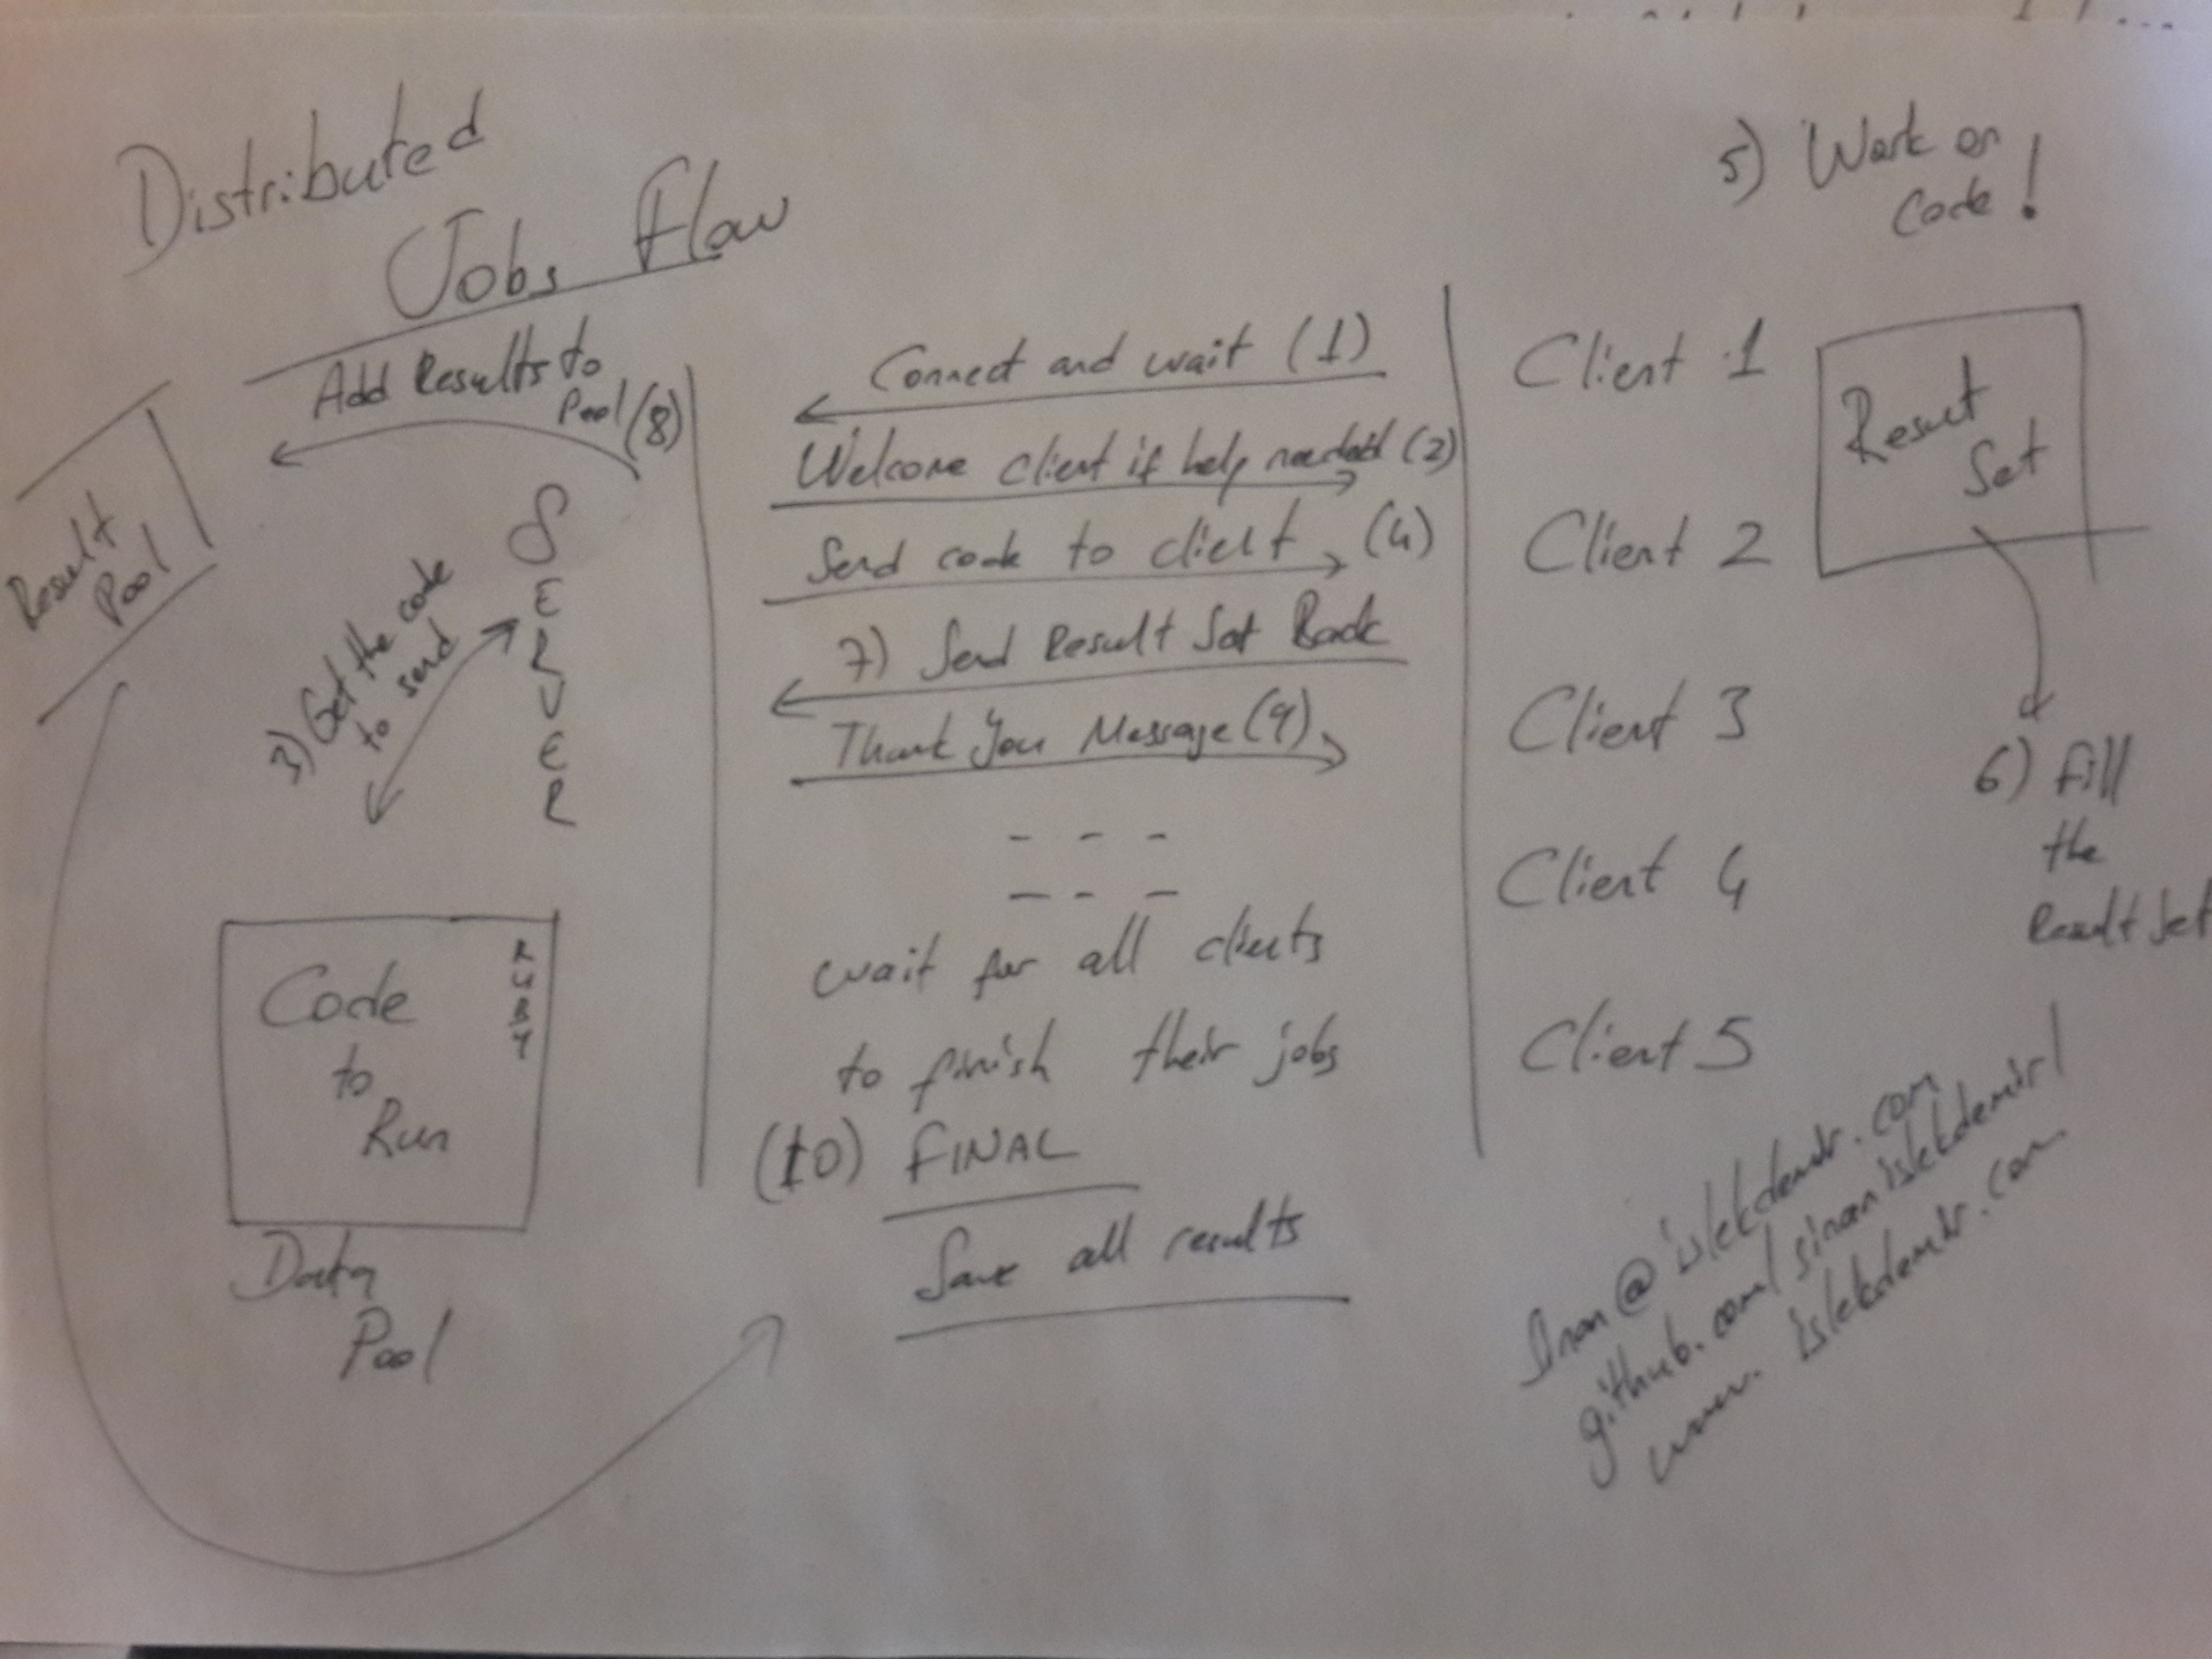 Distributed
Jobs Flow
5) Work on
Code!
Add Results to
Pool (8)
Result
Pool
3) Get the code
to send
SERVER
Code
to
Run
RUBY
Data
Pool
Connect and wait (1)
Welcome client if help needed (2)
Send code to client (4)
7) Send Result Set Back
Thank You Message (9)
- - -
- - -
wait for all clients
to finish their jobs
(10) FINAL
Save all results
Client 1
Client 2
Client 3
Client 4
Client 5
Result
Set
6) Fill
the
Result Set
sinan@islekdemir.com
github.com/sinanislekdemir/
www.islekdemir.com